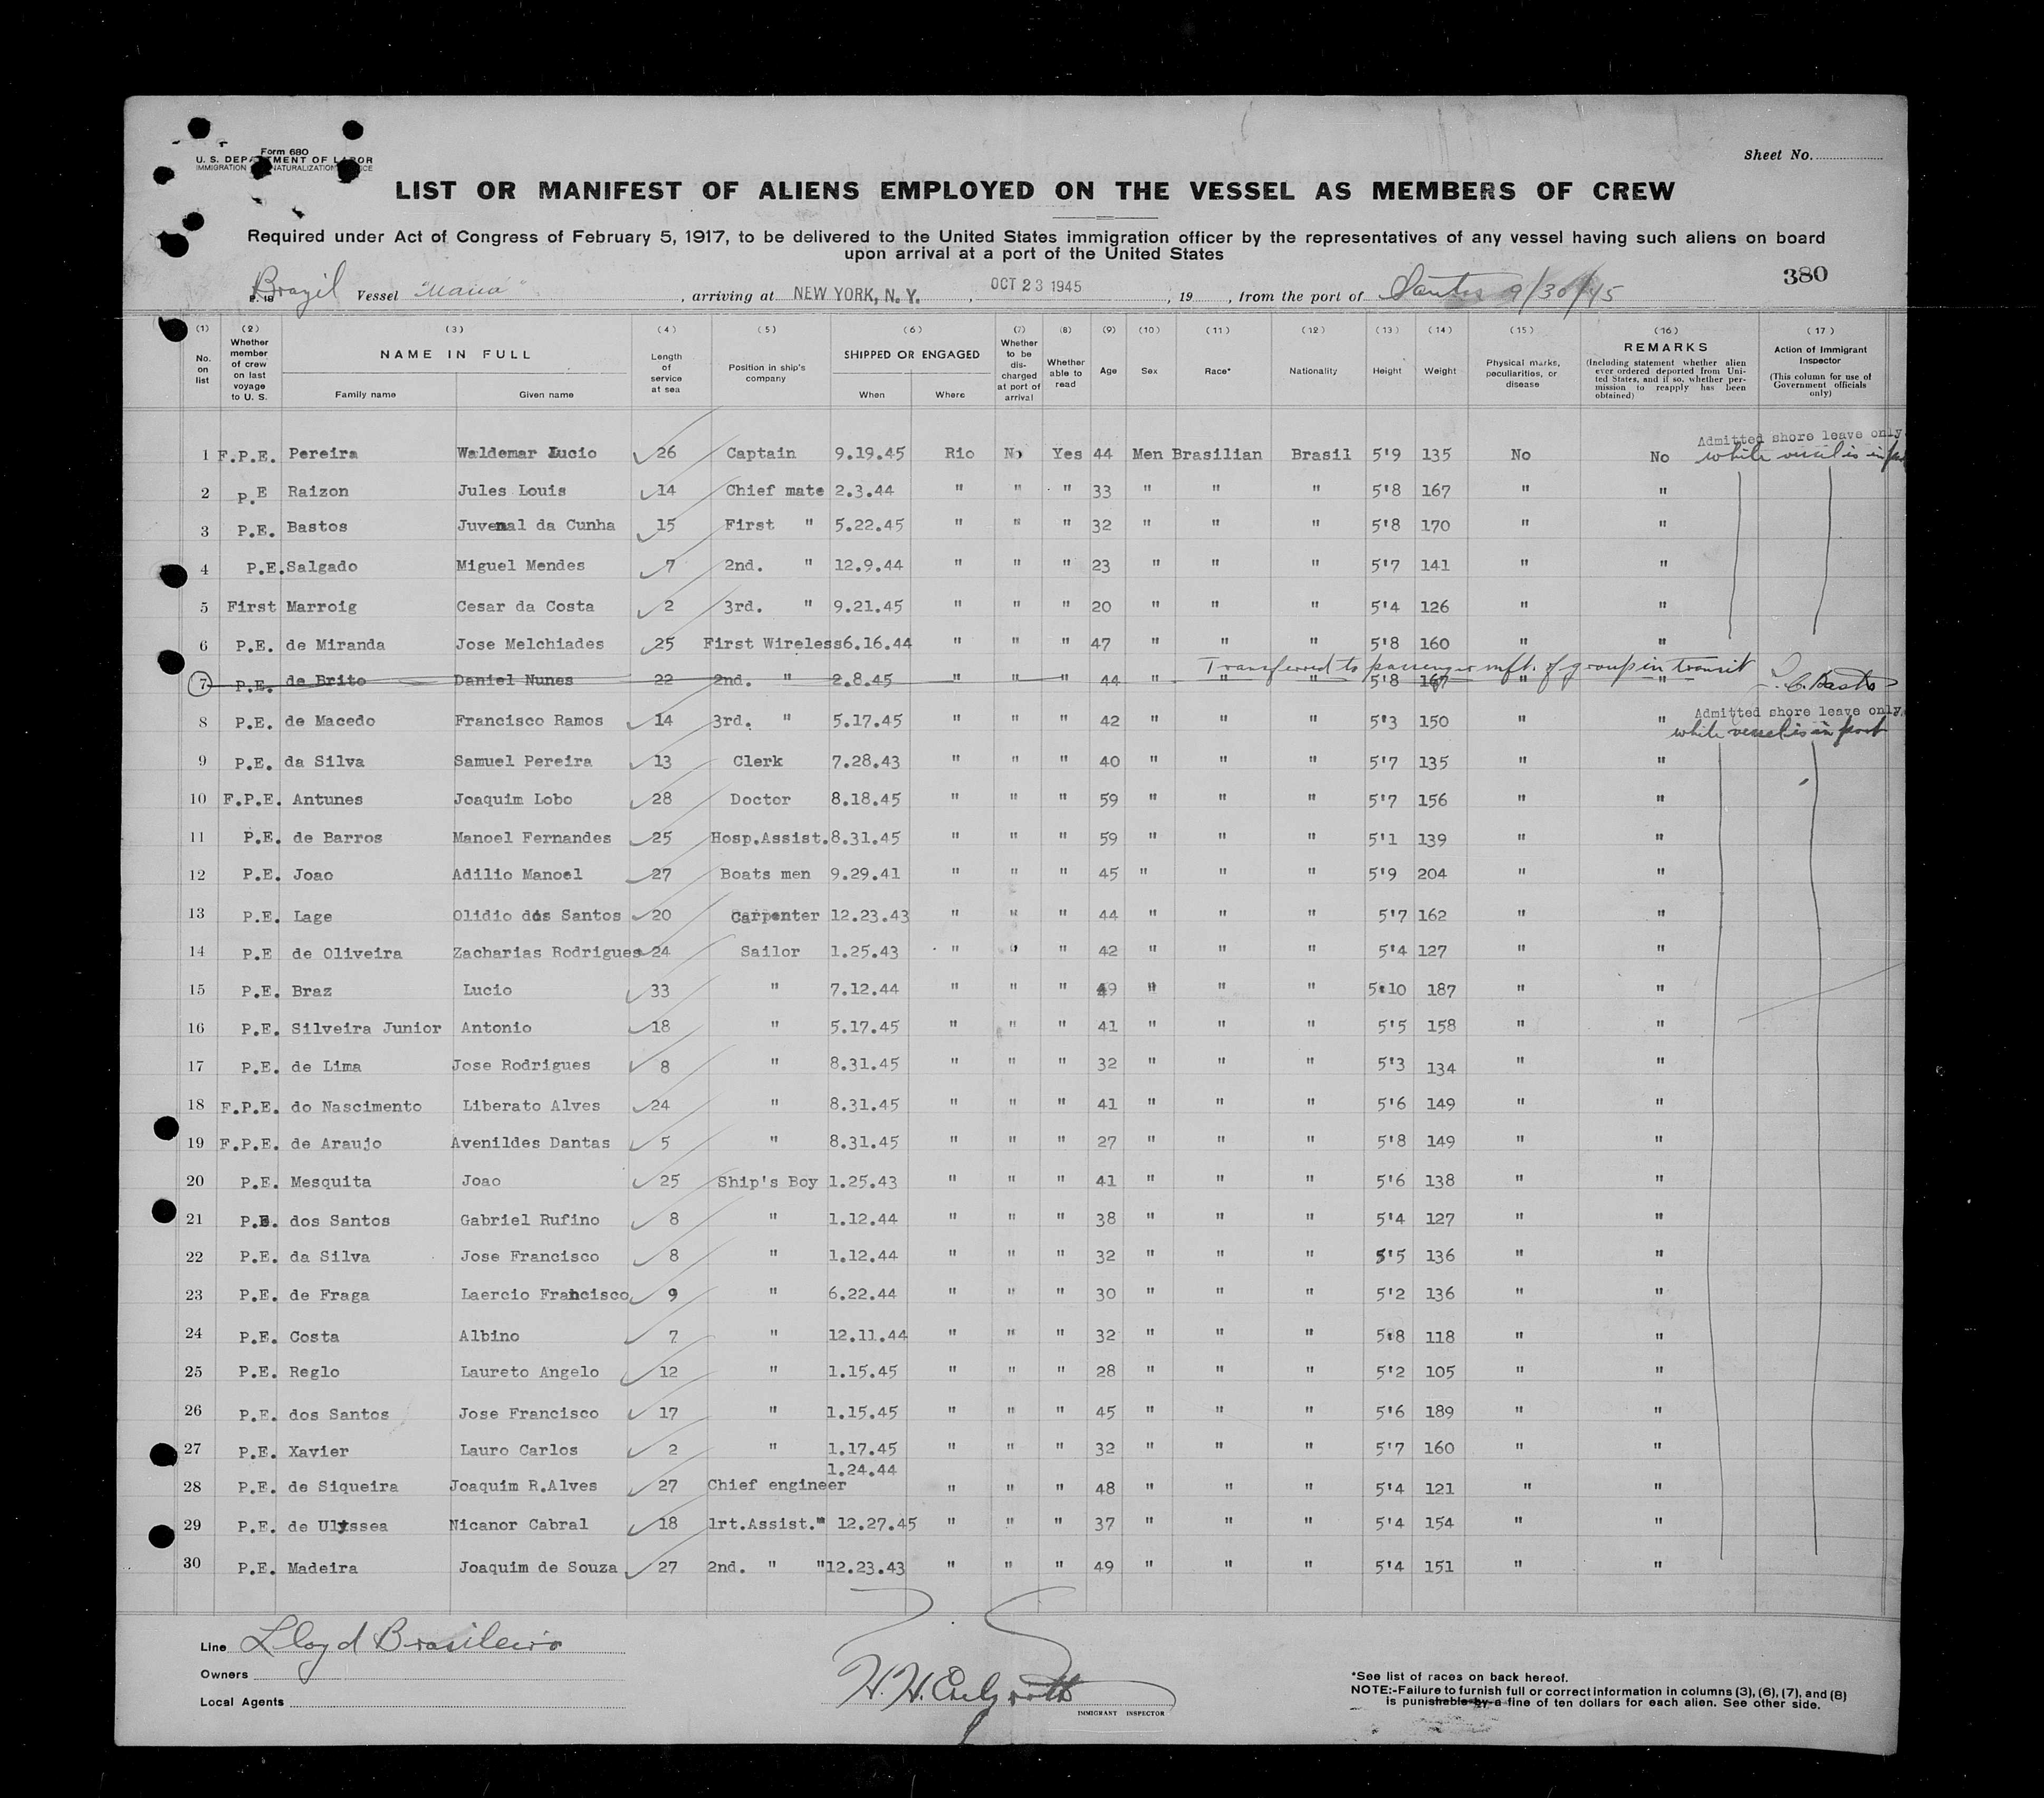 Form 680
U. S. DEPARTMENT OF LABOR
IMMIGRATION NATURALIZATION SERVICE
Sheet No.
LIST OR MANIFEST OF ALIENS EMPLOYED ON THE VESSEL AS MEMBERS OF CREW
Required under Act of Congress of February 5, 1917, to be delivered to the United States immigration officer by the representatives of any vessel having such aliens on board
upon arrival at a port of the United States
380
Brazil Vessel , arriving at NEW YORK, N. Y. , OCT 23 1945 , 19 , from the port of Santos 9/30/45
(1) (2) (3) (4) (5) (6) (7) (8) (9) (10) (11) (12) (13) (14) (15) (16) (17)
No. on list
Whether member of crew on last voyage to U. S.
NAME IN FULL
Family name Given name
Length of service at sea
Position in ship's company
SHIPPED OR ENGAGED
When Where
Whether to be discharged at port of arrival
Whether able to read
Age
Sex
Race*
Nationality
Height
Weight
Physical marks, peculiarities, or disease
REMARKS
(Including statement whether alien ever ordered deported from United States, and if so, whether permission to reapply has been obtained)
Action of Immigrant Inspector
(This column for use of Government officials only)
Admitted shore leave only
while vessel is in port
1 F.P.E. Pereira Waldemar Lucio 26 Captain 9.19.45 Rio No Yes 44 Men Brasilian Brasil 5'9 135 No No
2 P.E Raizon Jules Louis 14 Chief mate 2.3.44 " " " 33 " " " 5'8 167 " "
3 P.E. Bastos Juvenal da Cunha 15 First " 5.22.45 " " " 32 " " " 5'8 170 " "
4 P.E. Salgado Miguel Mendes 7 2nd. " 12.9.44 " " " 23 " " " 5'7 141 " "
5 First Marroig Cesar da Costa 2 3rd. " 9.21.45 " " " 20 " " " 5'4 126 " "
6 P.E. de Miranda Jose Melchiades 25 First Wireless 6.16.44 " " " 47 " " " 5'8 160 " "
Transferred to passenger mft. of group in transit
7 P.E. de Brito Daniel Nunes 22 2nd. " 2.8.45 " " " 44 " " " 5'8 167 " "
Admitted shore leave only.
while vessel is in port
8 P.E. de Macedo Francisco Ramos 14 3rd. " 5.17.45 " " " 42 " " " 5'3 150 " "
9 P.E. da Silva Samuel Pereira 13 Clerk 7.28.43 " " " 40 " " " 5'7 135 " "
10 F.P.E. Antunes Joaquim Lobo 28 Doctor 8.18.45 " " " 59 " " " 5'7 156 " "
11 P.E. de Barros Manoel Fernandes 25 Hosp.Assist. 8.31.45 " " " 59 " " " 5'1 139 " "
12 P.E. Joao Adilio Manoel 27 Boats men 9.29.41 " " " 45 " " " 5'9 204 " "
13 P.E. Lage Olidio dos Santos 20 Carpenter 12.23.43 " " " 44 " " " 5'7 162 " "
14 P.E de Oliveira Zacharias Rodrigues 24 Sailor 1.25.43 " " " 42 " " " 5'4 127 " "
15 P.E. Braz Lucio 33 " 7.12.44 " " " 49 " " " 5'10 187 " "
16 P.E. Silveira Junior Antonio 18 " 5.17.45 " " " 41 " " " 5'5 158 " "
17 P.E. de Lima Jose Rodrigues 8 " 8.31.45 " " " 32 " " " 5'3 134 " "
18 F.P.E. do Nascimento Liberato Alves 24 " 8.31.45 " " " 41 " " " 5'6 149 " "
19 F.P.E. de Araujo Avenildes Dantas 5 " 8.31.45 " " " 27 " " " 5'8 149 " "
20 P.E. Mesquita Joao 25 Ship's Boy 1.25.43 " " " 41 " " " 5'6 138 " "
21 P.E. dos Santos Gabriel Rufino 8 " 1.12.44 " " " 38 " " " 5'4 127 " "
22 P.E. da Silva Jose Francisco 8 " 1.12.44 " " " 32 " " " 5'5 136 " "
23 P.E. de Fraga Laercio Francisco 9 " 6.22.44 " " " 30 " " " 5'2 136 " "
24 P.E. Costa Albino 7 " 12.11.44 " " " 32 " " " 5'8 118 " "
25 P.E. Reglo Laureto Angelo 12 " 1.15.45 " " " 28 " " " 5'2 105 " "
26 P.E. dos Santos Jose Francisco 17 " 1.15.45 " " " 45 " " " 5'6 189 " "
27 P.E. Xavier Lauro Carlos 2 " 1.17.45 " " " 32 " " " 5'7 160 " "
28 P.E. de Siqueira Joaquim R.Alves 27 Chief engineer 1.24.44 " " " 48 " " " 5'4 121 " "
29 P.E. de Ulyssea Nicanor Cabral 18 1rt.Assist." 12.27.45 " " " 37 " " " 5'4 154 " "
30 P.E. Madeira Joaquim de Souza 27 2nd. " " 12.23.43 " " " 49 " " " 5'4 151 " "
Line Lloyd Brasileiro
Owners
Local Agents
IMMIGRANT INSPECTOR
*See list of races on back hereof.
NOTE:-Failure to furnish full or correct information in columns (3), (6), (7), and (8)
is punishable by a fine of ten dollars for each alien. See other side.